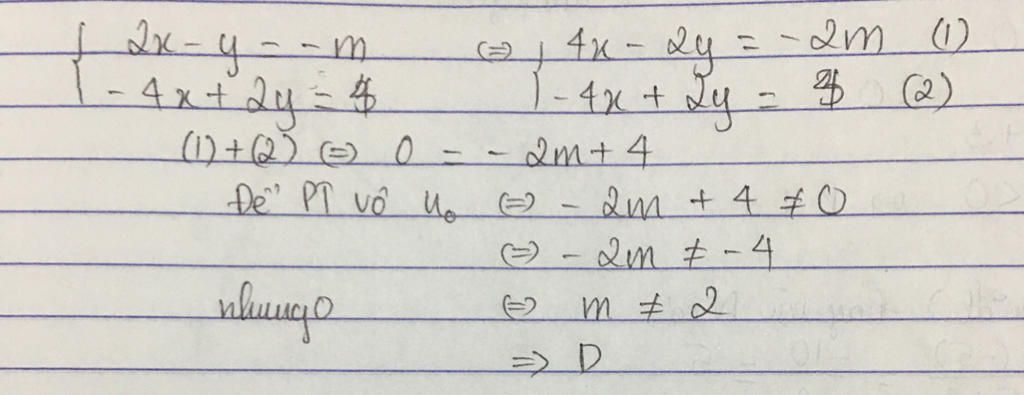 { 2x - y = -m ⇔ { 4x - 2y = -2m (1)
-4x + 2y = 4 -4x + 2y = 4 (2)
(1)+(2) ⇔ 0 = -2m + 4
Để PT vô no ⇔ -2m + 4 ≠ 0
⇔ -2m ≠ -4
nhungo ⇔ m ≠ 2
=> D